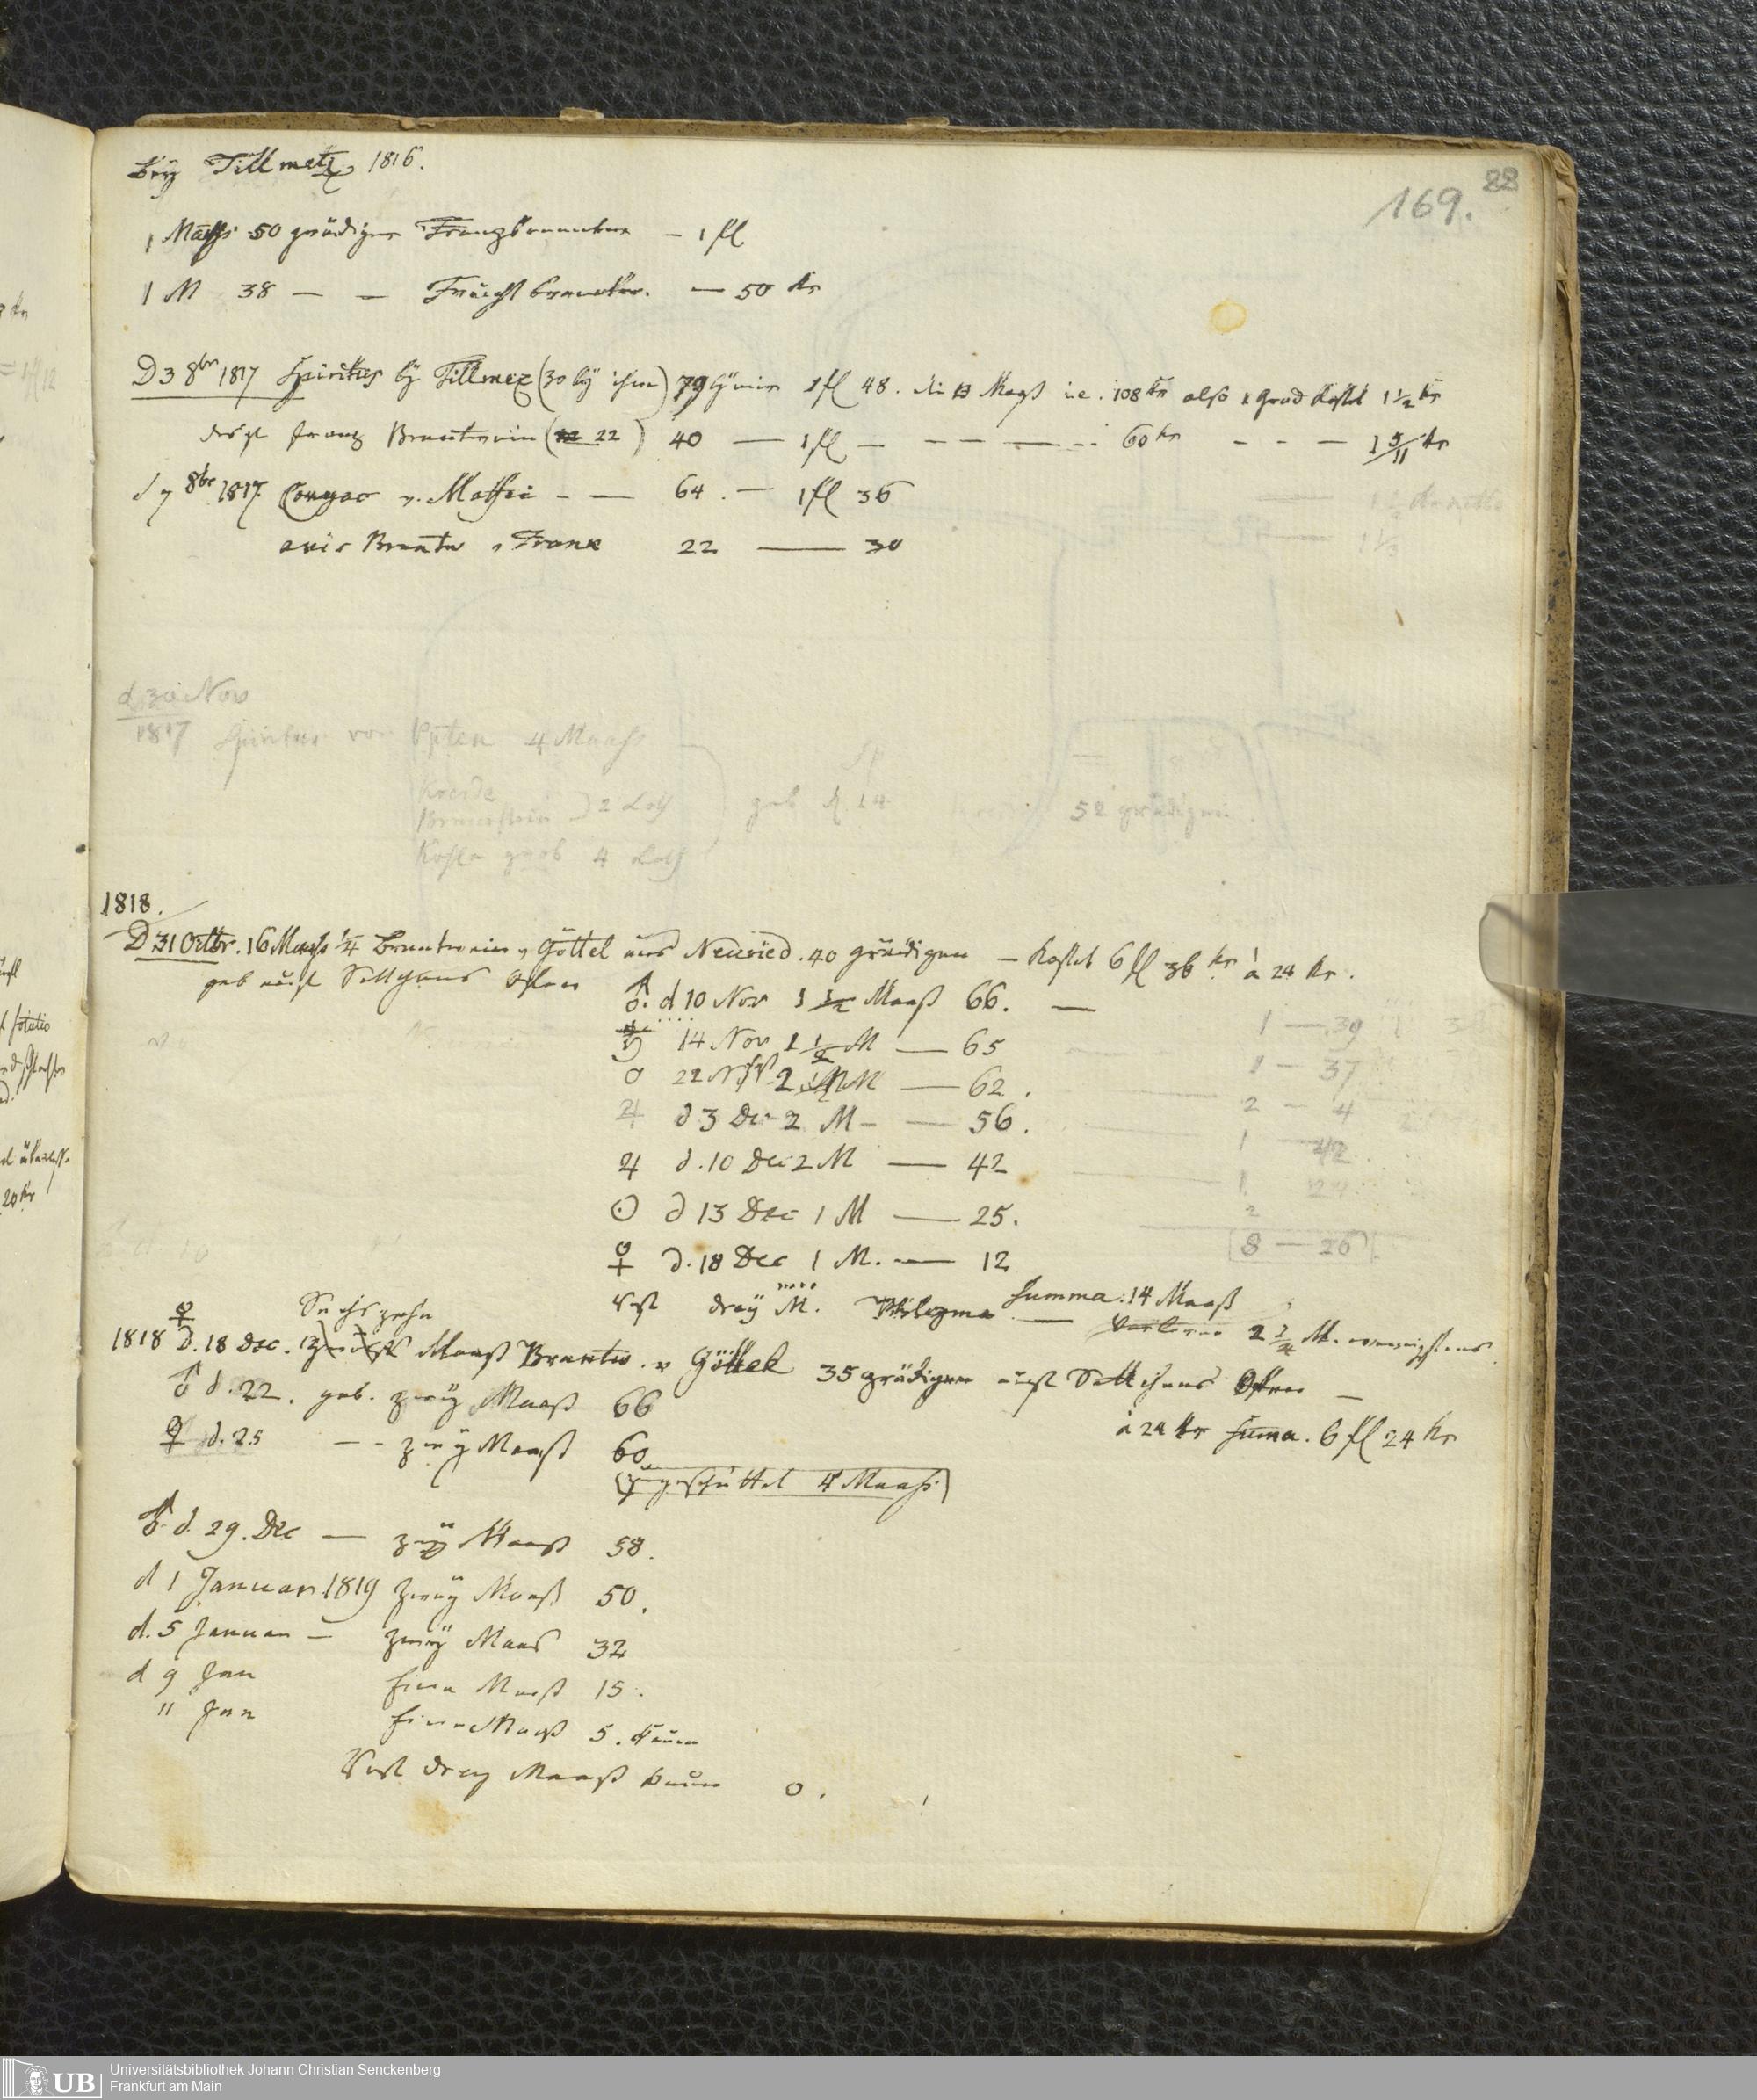 bey Tillmetz 1816.
169. 22
1 Maaß 50 grädigen Franzbranntw — 1 fl
1 M 38 — — Frucht branntw. — 50 kr
D 3 8br 1817 Spiritus by Tillmez (30 by ihm) 79 by mir 1 fl 48. die Maaß i.e. 108 kr also 1 Grad kostet 1 1/2 kr
desgl franz Brantwein (22) 40 — 1 fl — — — — 60 kr - - — 1 5/11 kr
d 7 8br 1817. Congac v. Maffei - — 64. — 1 fl 36
anis Brantw v Frank 22 — 30
d 30 Nov
1817 Spiritus von 4 Maass
Kreide
Braunstein 2 Loth
Kohle grob 4 Loth
gab d. 14 52 grädigen
1818.
D 31 Octbr. 16 Maaß 1/4 Brantwein v Göttel aus Neuried. 40 grädigen — kostet 6 fl 36 kr à 24 kr.
gab aus Ofen
♂. d 10 Nov 1 1/2 Maaß 66. —
14 Nov 1 1/2 M — 65
22 Nov 2 M — 62.
♃ d 3 Dec 2 M - — 56.
♃ d. 10 Dec 2 M — 42
☉ d 13 Dec 1 M — 25.
♀ d. 18 Dec 1 M. — 12
1 — 39
1 — 37
2 — 4
1 — 42
1 24
2
8 — 26
Rest drey M. Phlegma — Summa. 14 Maaß
Verloren 2 1/4 M. wenigstens.
♀ Sechszehn
1818 D. 18 Dec. Maaß Brantw. v Göttel 35 grädigen aus Ofen —
à 24 kr Suma. 6 fl 24 kr
♂ d. 22. gab. zwey Maaß 66
♀ d. 25 - - zwey Maaß 60
(zugeschüttet 4 Maaß)
♂ d. 29. Dec — zwey Maaß 58.
d 1 Januar 1819 zwey Maaß 50.
d. 5 Januar — zwey Maas 32
d 9 Jan Eine Maaß 15.
11 Jan Eine Maaß 5. kaum
Rest drey Maaß kaum 0.
UB
Universitätsbibliothek Johann Christian Senckenberg
Frankfurt am Main